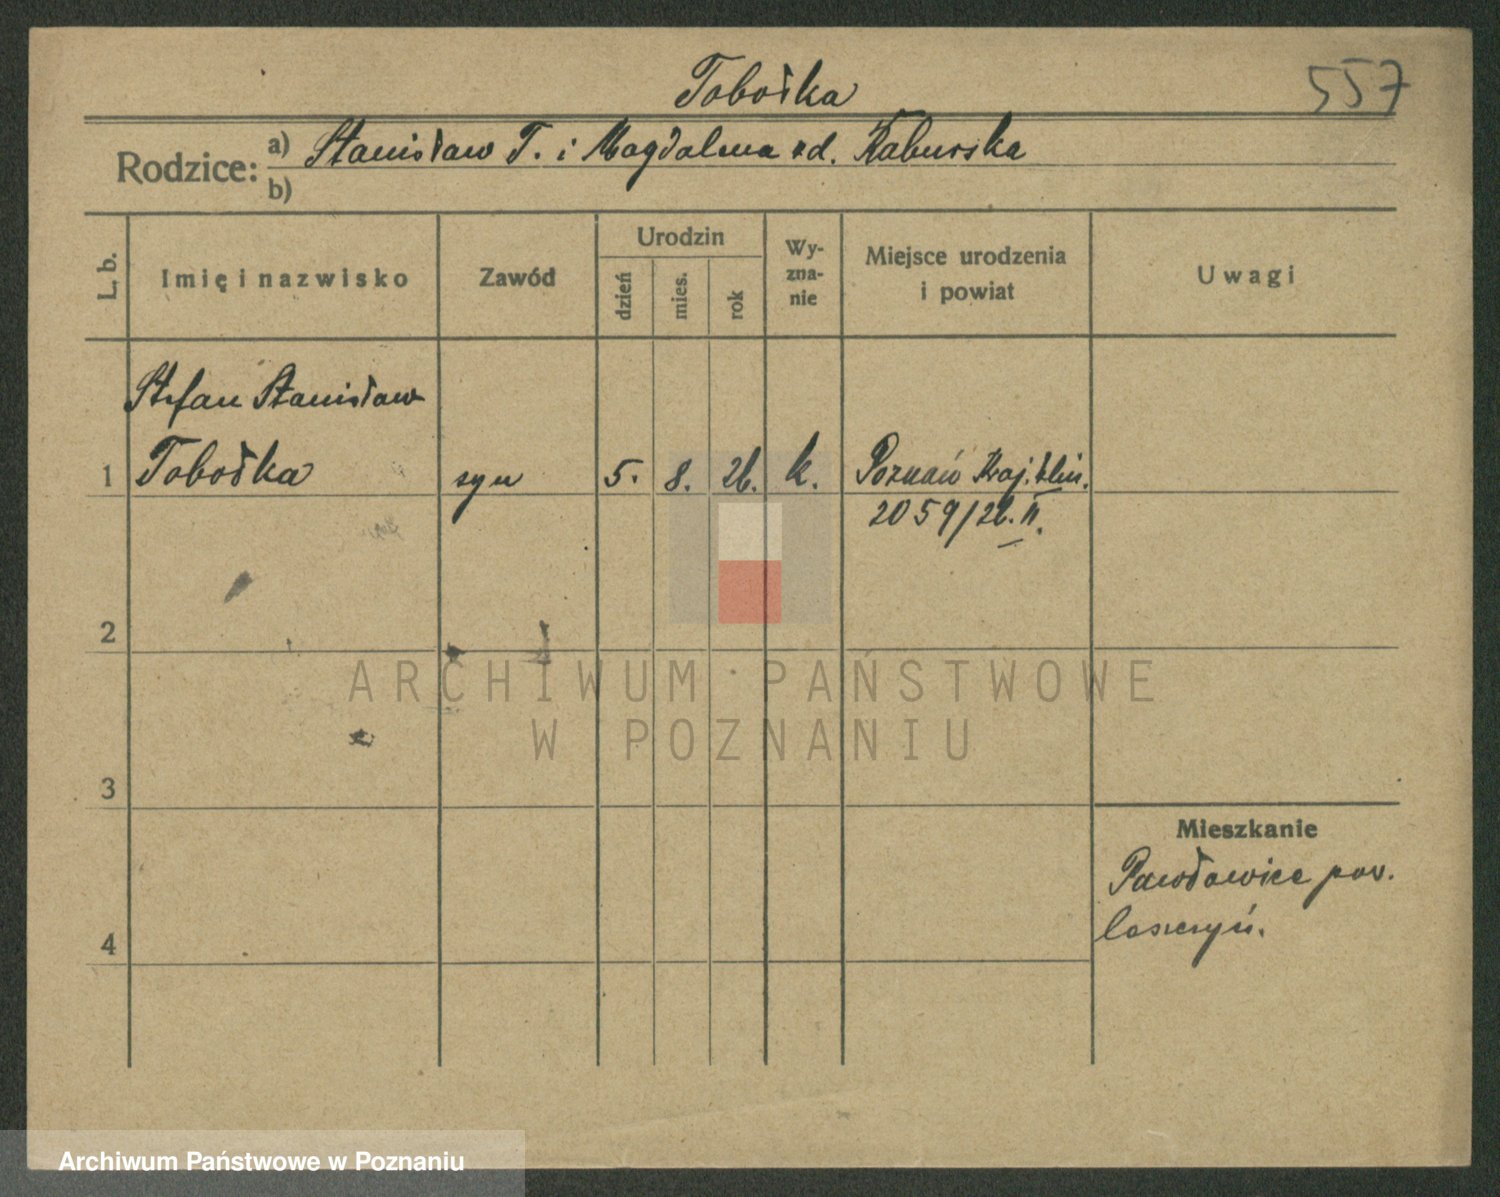 Tobołka
557
Rodzice: a) Stanisław T. i Magdalena zd. Kaburska
b)
L. b.
Imię i nazwisko
Zawód
Urodzin
dzień
mies.
rok
Wy-
zna-
nie
Miejsce urodzenia
i powiat
Uwagi
Stefan Stanisław
1 Tobołka syn 5. 8. 26. k. Poznań Kraj. klin.
2059/26. II.
2
3
4
Mieszkanie
Pawłowice pow.
Leszczyń.
ARCHIWUM PAŃSTWOWE
W POZNANIU
Archiwum Państwowe w Poznaniu